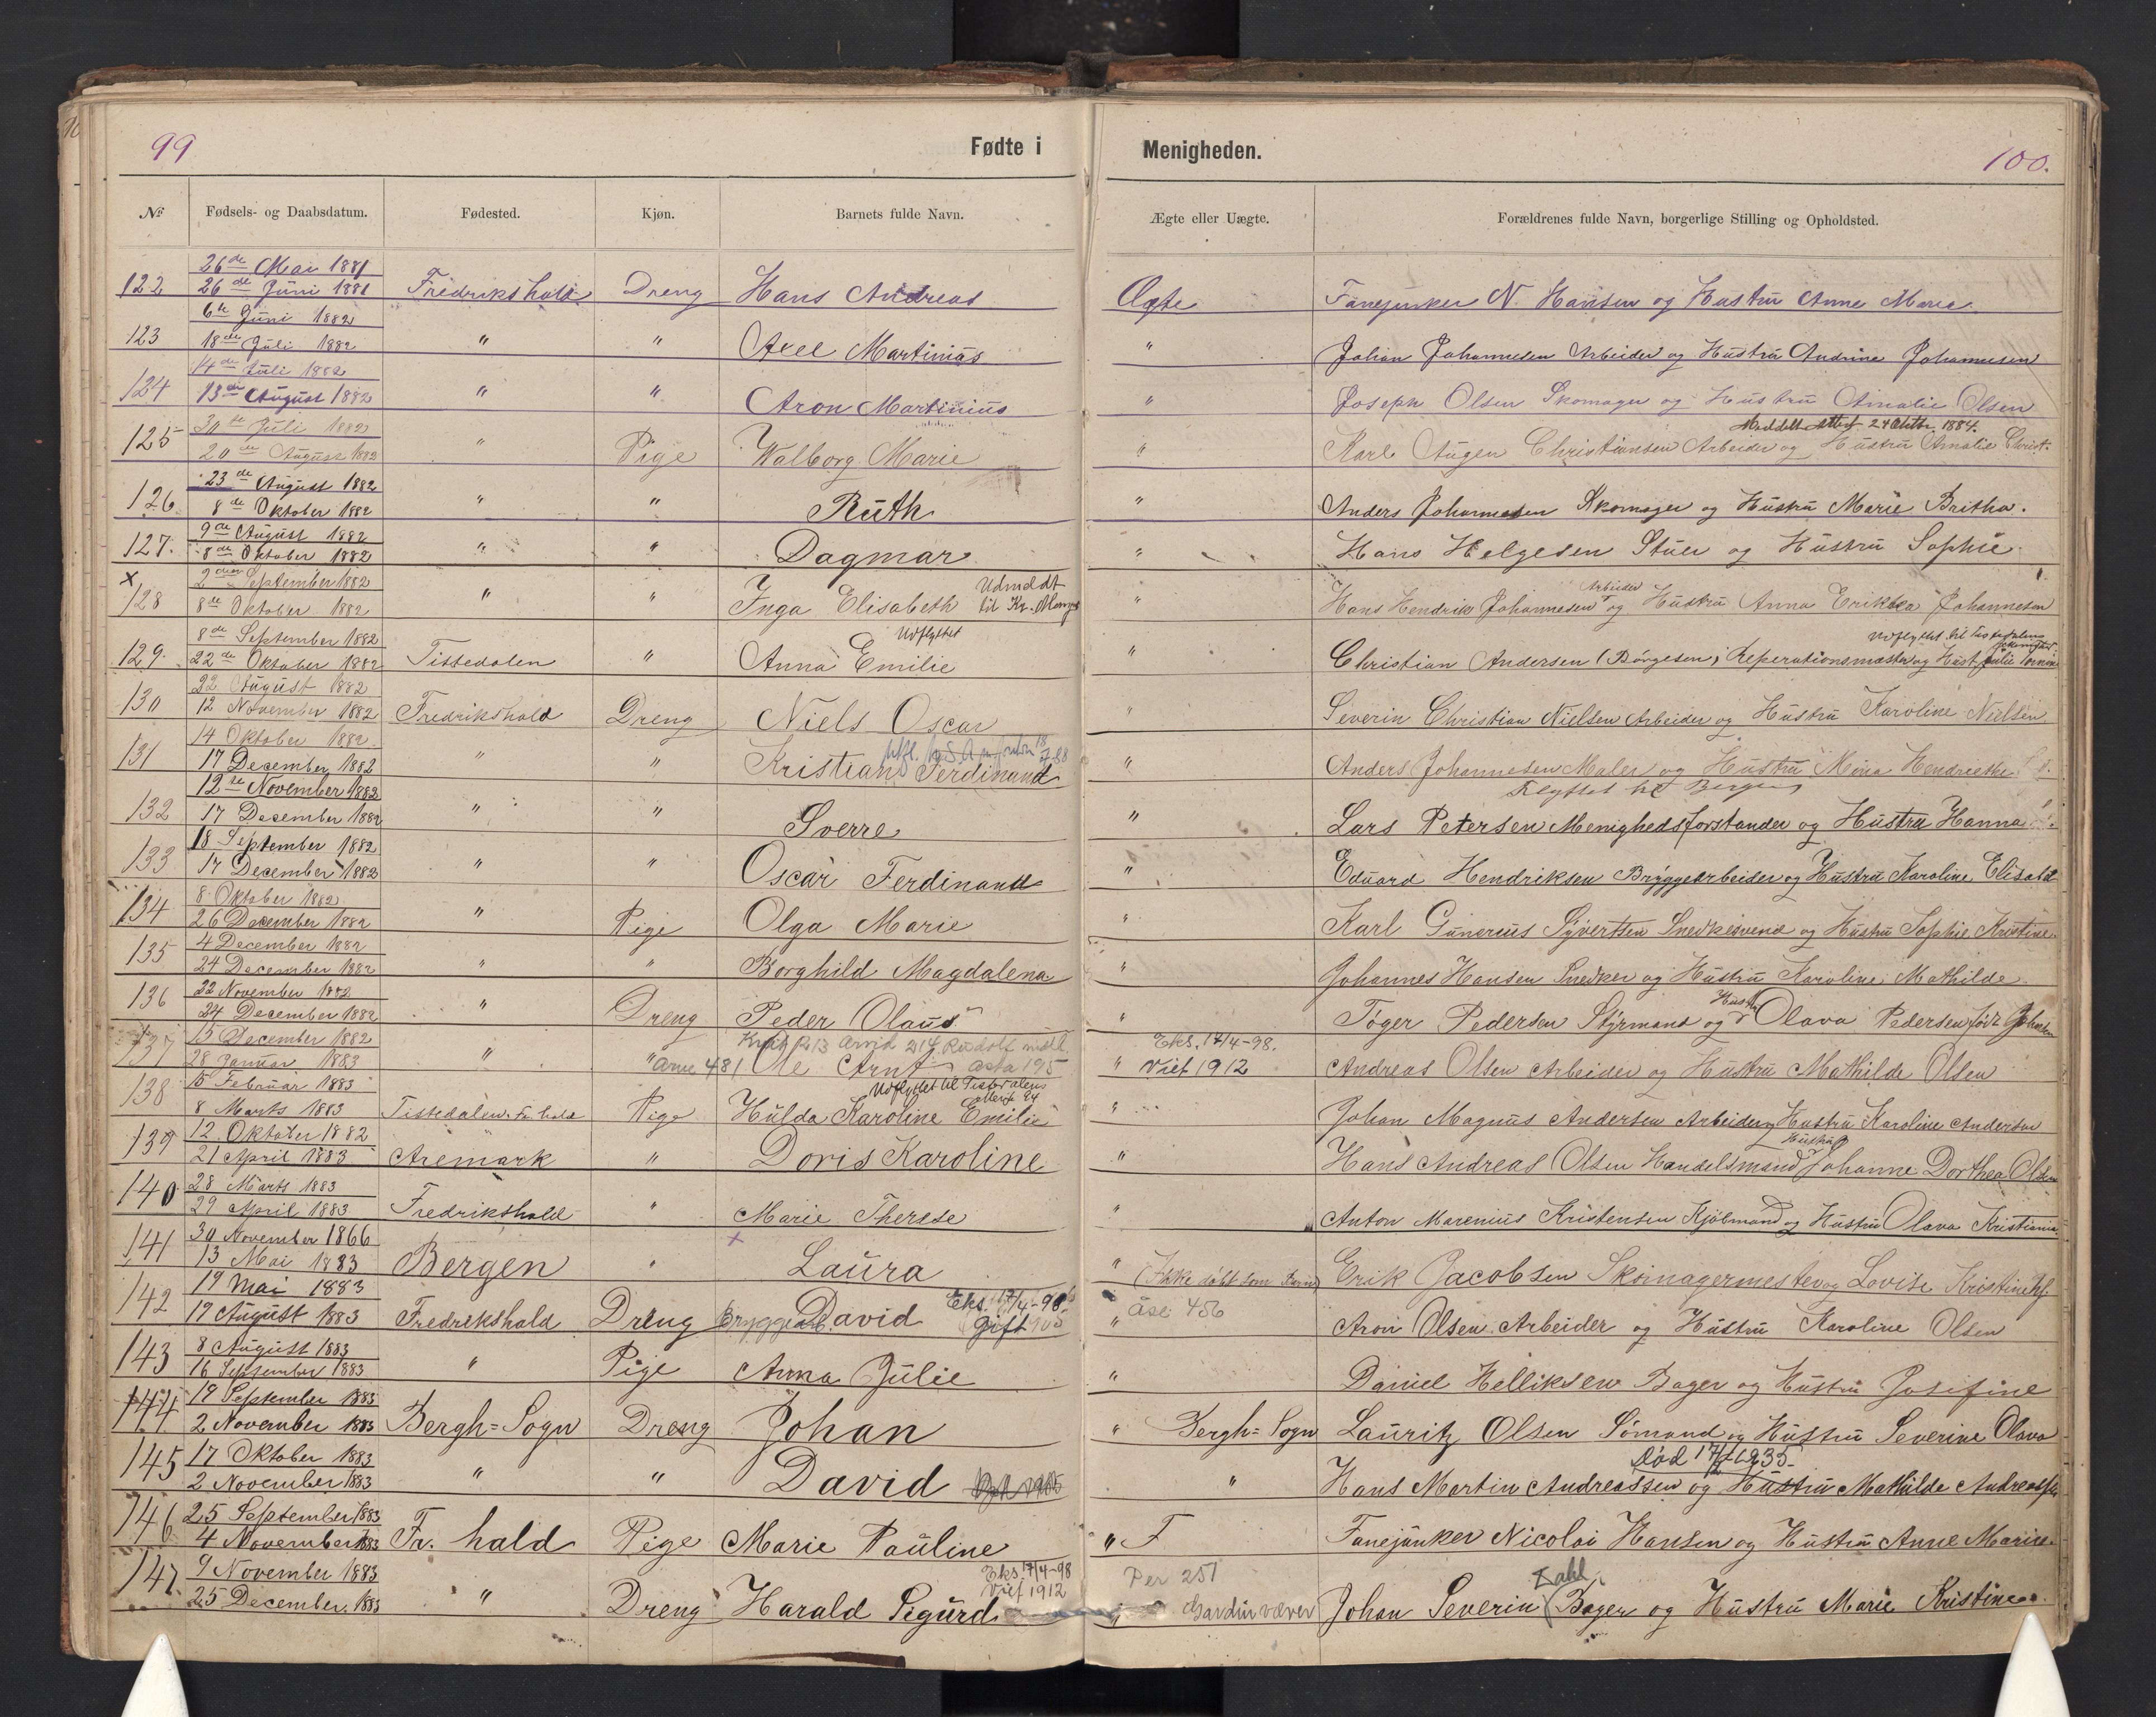 99
Fødte i
Menigheden.
100.
№ Fødsels- og Daabsdatum. Fødested. Kjøn. Barnets fulde Navn. Ægte eller Uægte. Forældrenes fulde Navn, borgerlige Stilling og Opholdsted.
26de Mai 1881
122 26de Juni 1881 Fredrikshald Dreng Hans Andreas Ægte Fanejunker N. Hansen og Hustru Anne Marie
6te Juni 1882
123 18de Juli 1882 " " Axel Martinius " Johan Johannesen Arbeider og Hustru Andrine Johannesen
14de Juli 1882
124 13de August 1882 " " Aron Martinius " Joseph Olsen Skomager og Hustru Amalie Olsen
Meddelt Attest 24 Oktbr. 1884.
30te Juli 1882
125 20de August 1882 " Pige Walborg Marie " Karl Augen Christiansen Arbeider og Hustru Amalie Christ.
23de August 1882
126 8de Oktober 1882 " " Ruth " Anders Johannesen Skomager og Hustru Marie Britha.
9de August 1882
127. 8de Oktober 1882 " " Dagmar " Hans Helgesen Stuer og Hustru Sophie
x 2den September 1882 Udmeldt Arbeider
128 8de Oktober 1882 " " Inga Elisabeth til Kr. " Hans Hendrik Johannesen og Hustru Anna Erikka Johannesen
8de September 1882 Udflyttet Udflyttet til Tistedalens
129. 22de Oktober 1882 Tistedalen " Anna Emilie " Christian Andersen (Børgesen) Reperationsmester og Hust. Julie
22 August 1882
130 12 November 1882 Fredrikshald Dreng Niels Oscar " Severin Christian Nielsen Arbeider og Hustru Karoline Nielsen
14 Oktober 1882
131 17 December 1882 " " Kristian Ferdinand " Anders Johannesen Maler og Hustru Mina Hendriette
12te November 1882 Flyttet til Bergen
132 17 December 1882 " " Sverre " Lars Petersen Menighedsforstander og Hustru Hanna
18 September 1882
133 17 December 1882 " " Oscar Ferdinand " Eduard Hendriksen Bryggearbeider og Hustru Karoline Elisabt
8 Oktober 1882
134 26 December 1882 " Pige Olga Marie " Karl Gunerius Syvertsen Snedkersvend og Hustru Sophie Kristine
4 December 1882
135 24 December 1882 " " Borghild Magdalena " Johannes Hansen Snedker og Hustru Karoline Mathilde
22 November 1882 Hustru
136 24 December 1882 " Dreng Peder Olaus " Tøger Pedersen Styrmand og Olava Pedersen født
15 December 1882 Eks. 17/4-98.
137 28 Januar 1883 " " Arne 481 Ole Arnt Asta 195 " Vief 1912 Andreas Olsen Arbeider og Hustru Mathilde Olsen
15 Februar 1883 Udflyttet til Tistedalens
138 8 Marts 1883 Tistedalen Fr. hald Pige Hulda Karoline Emilie " Johan Magnus Andersen Arbeider og Hustru Karoline Andersen
12 Oktober 1882 Hustru
139 21 April 1883 Aremark " Doris Karoline " Hans Andreas Olsen Handelsmand og Johanne Dorthea Olsen
28 Marts 1883
140 29 April 1883 Fredrikshald " Marie Therese " Anton Marenius Kristensen Kjøbmand og Hustru Olava
30 November 1866 x
141 13 Mai 1883 Bergen " Laura " (Ikke døbt som Barn) Erik Jacobsen Skomagermester og Lovise
19 Mai 1883 Eks. 17/4-98.
142 19 August 1883 Fredrikshald Dreng Bryggearb. David Gift 1905 " Åse 456 Aron Olsen Arbeider og Hustru Karoline Olsen
8 August 1883
143 16 September 1883 " Pige Anna Julie " Daniel Helliksen Bager og Hustru Josefine
19 September 1883
144 2 November 1883 Bergh=Sogn Dreng Johan " Bergh=Sogn Lauritz Olsen Sømand og Hustru Severine Olava
17 Oktober 1883 Død
145 2 November 1883 " " David " Hans Martin Andreassen og Hustru Mathilde
25 September 1883
146 4 November 1883 Fr. hald Pige Marie Pauline " F Fanejunker Nicolai Hansen og Hustru Anne Marie.
9 November 1883 Eks. 17/4-98 Vief 1912 Per 251 Dahl
147. 25 December 1883 " Dreng Harald Sigurd " Gardinvæver Johan Severin Bager og Hustru Marie Kristine.